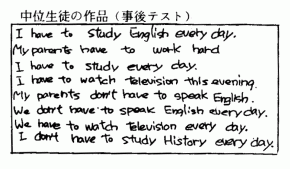 中位生徒の作品（事後テスト）
I have to study English every day.
My parents have to work hard
I have to study every day.
I have to watch television this evening.
My parents don't have to speak English.
We don't have to speak English every day.
We have to watch television every day.
I don't have to study History every day.